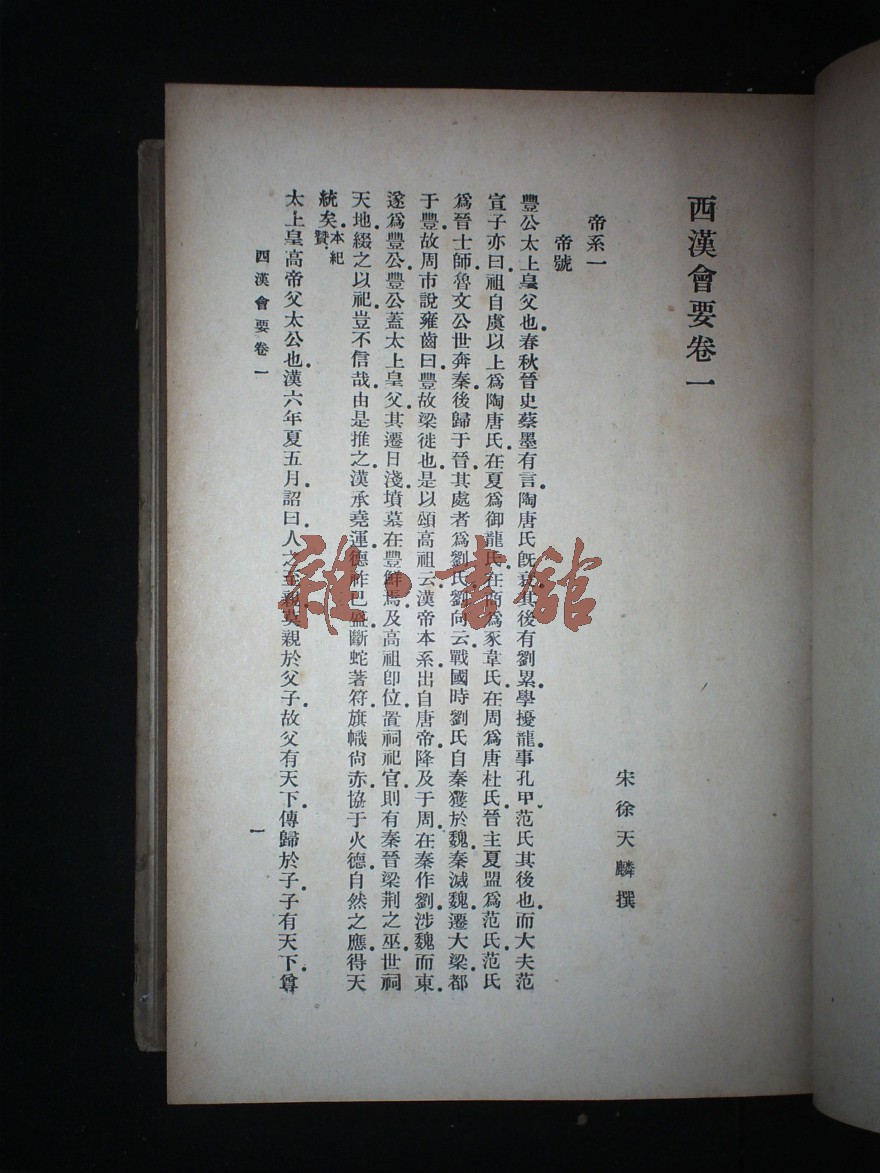 西漢會要卷一
宋徐天麟撰
帝系一
帝號
豐公太上皇父也春秋晉史蔡墨有言陶唐氏旣衰其後有劉累學擾龍事孔甲范氏其後也而大夫范
宣子亦曰祖自虞以上爲陶唐氏在夏爲御龍氏在商爲豕韋氏在周爲唐杜氏晉主夏盟爲范氏范氏
爲晉士師魯文公世奔秦後歸于晉其處者爲劉氏劉向云戰國時劉氏自秦獲於魏秦滅魏遷大梁都
于豐故周市說雍齒曰豐故梁徙也是以頌高祖云漢帝本系出自唐帝降及于周在秦作劉涉魏而東
遂爲豐公豐公蓋太上皇父其遷日淺墳墓在豐鮮焉及高祖卽位置祠祀官則有秦晉梁荆之巫世祠
天地綴之以祀豈不信哉由是推之漢承堯運德祚已盛斷蛇著符旗幟尙赤協于火德自然之應得天
統矣本紀贊
太上皇高帝父太公也漢六年夏五月詔曰人之至親莫親於父子故父有天下傳歸於子子有天下尊
西漢會要卷一
一
雜·書館